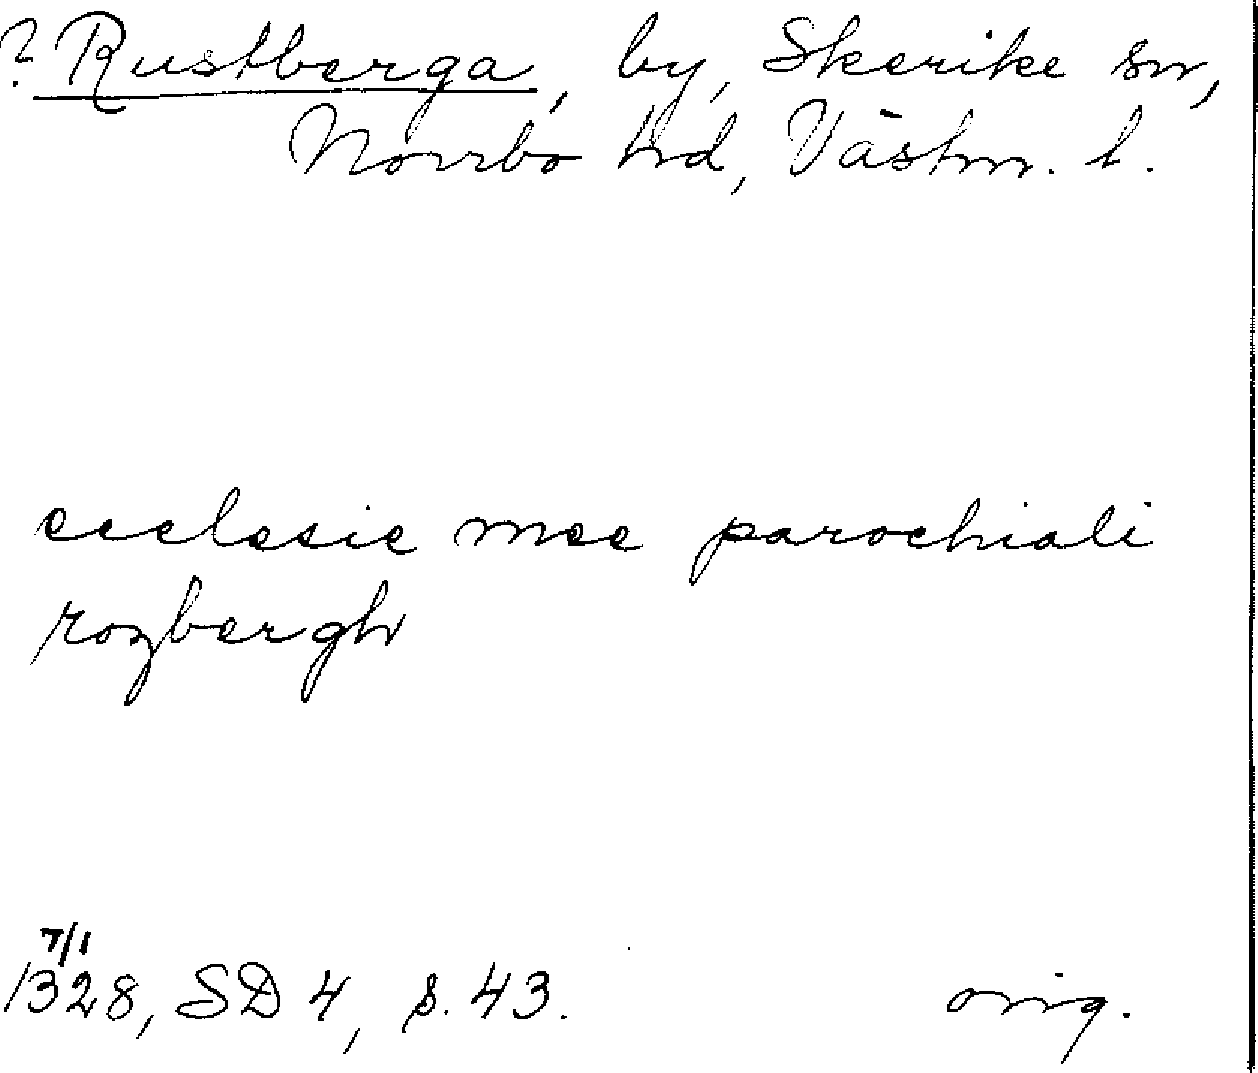 ? Rustberga, by, Skerike sn,
Norrbo hd, Västm. l.
ecclesie mee parochiali
rozbergh
7/1
1328, SD 4, s. 43. orig.